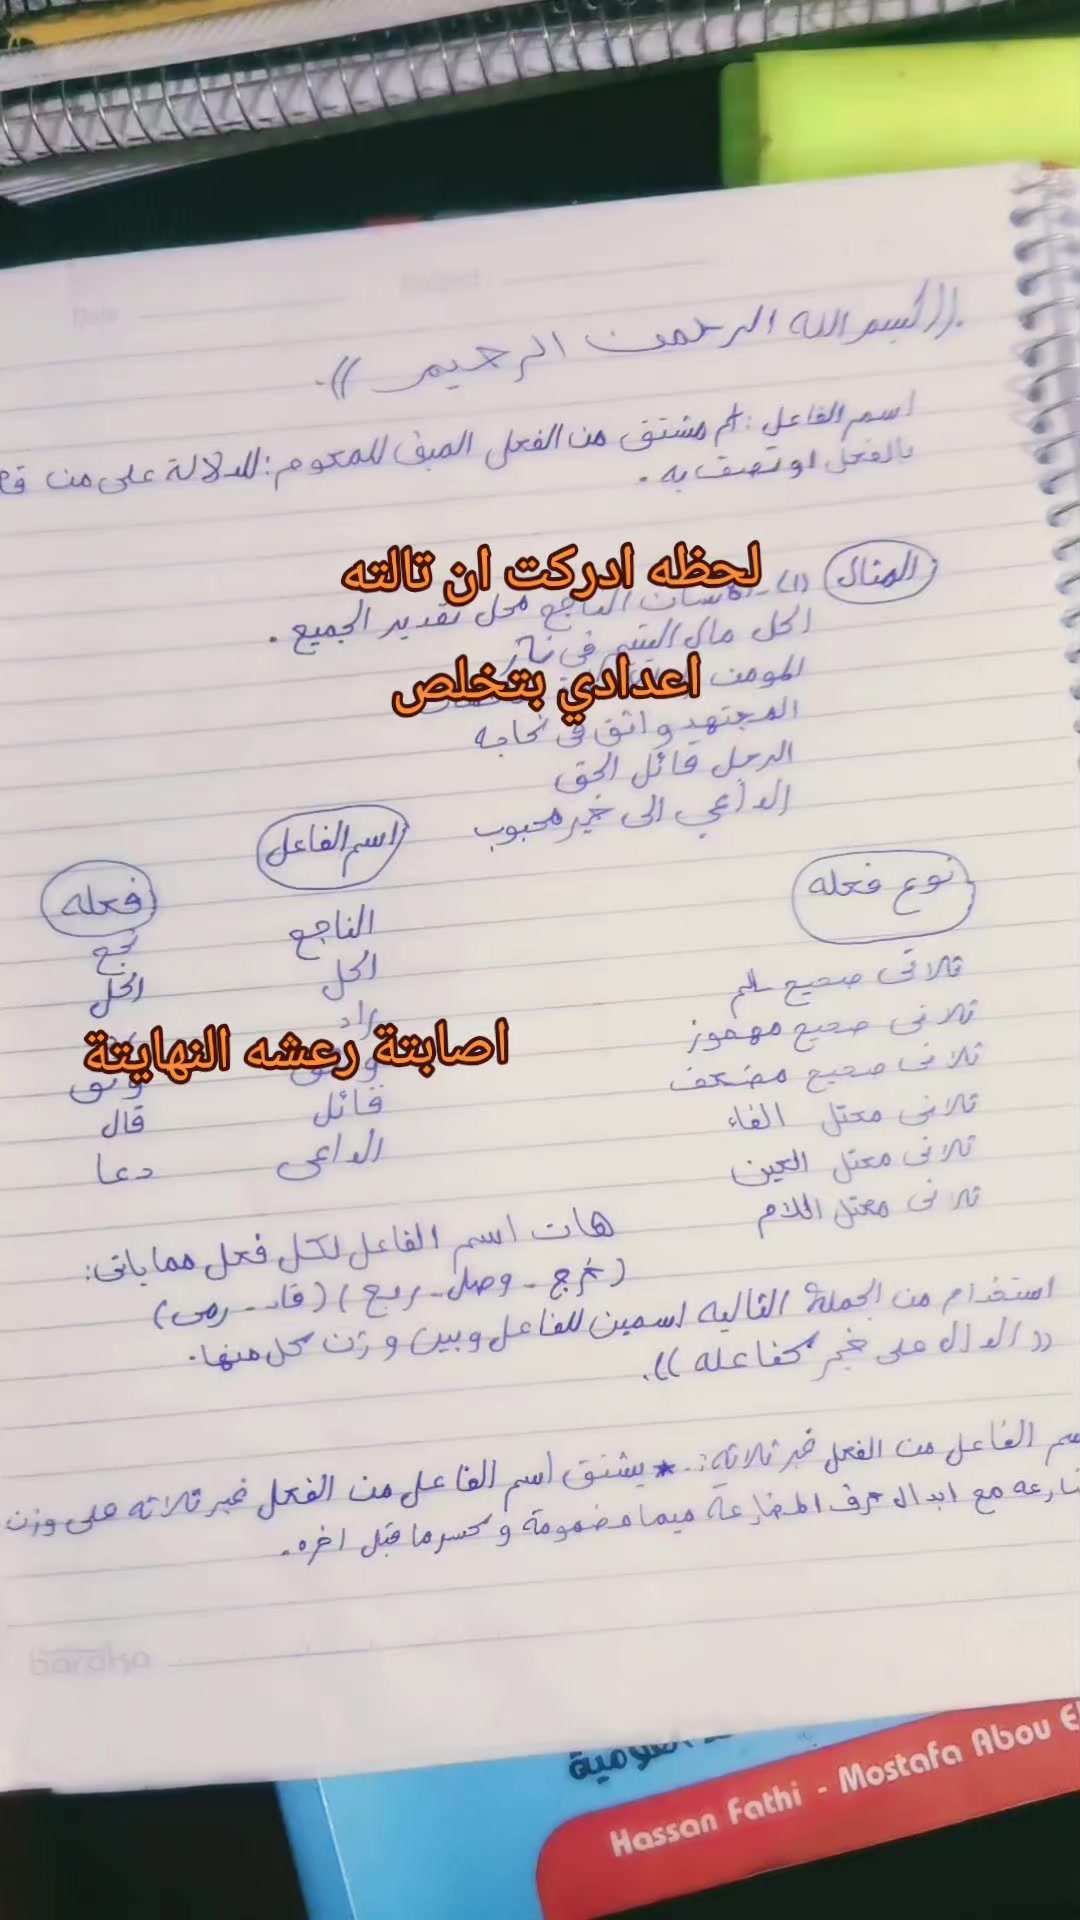 ((بسم الله الرحمن الرحيم)).
اسم الفاعل: اسم مشتق من الفعل المبنى للمعلوم: للدلالة على من
بالفعل او تصف به.
لحظه ادركت ان تالته
المثال (١)- الناجح محل تقدير الجميع.
اكل مال اليتيم في نار
المومن
اعدادي بتخلص
المجتهد واثق في نجاحه
الرجل قائل الحق
الداعي الى خير محبوب
نوع فعله اسم الفاعل فعله
ثلاثى صحيح سالم الناجح نجح
ثلاثى صحيح مهموز اكل اكل
ثلاثى صحيح مضعف راد
اصابتة رعشه النهايتة
ثلاثى معتل الفاء وثق
ثلاثى معتل العين قائل قال
ثلاثى معتل اللام الداعى دعا
هات اسم الفاعل لكل فعل مما ياتى:
(خرج - وصل - ربح) (قاد - رمى)
استخدام من الجملة التاليه اسمين للفاعل وبين وزن كل منها.
((الدال على خير كفاعله)).
الفاعل من الفعل غير ثلاثة:. * يشتق اسم الفاعل من الفعل غير ثلاثه على وزن
مع ابدال حرف المضارعة ميما مضمومة وكسر ما قبل اخره.
baraka
Hassan Fathi - Mostafa Abou